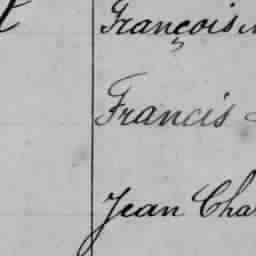 François
Francis
Jean Cha